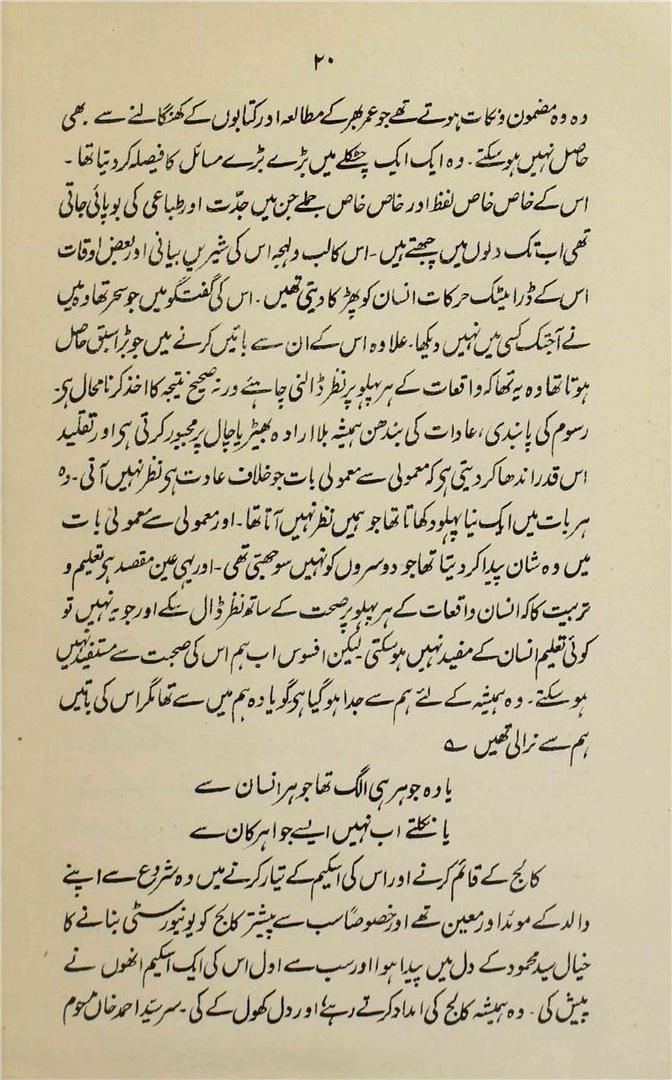 ۲۰
وہ وہ مضمون و نکات ہوتے تھے جو عمر بھر کے مطالعہ اور کتابوں کے کھنگالنے سے بھی
حاصل نہیں ہو سکتے ۔ وہ ایک ایک چٹکلے میں بڑے بڑے مسائل کا فیصلہ کر دیتا تھا ۔
اس کے خاص خاص لفظ اور خاص خاص جملے جن میں جدّت اور طباعی کی بو پائی جاتی
تھی اب تک دلوں میں چبھتے ہیں ۔ اس کا لب و لہجہ اس کی شیریں بیانی اور بعض اوقات
اس کے ڈرامیٹک حرکات انسان کو پھڑکا دیتی تھیں ۔ اس کی گفتگو میں جو سحر تھا وہ میں
نے آجتک کسی میں نہیں دیکھا ۔ علاوہ اس کے ان سے باتیں کرنے میں جو بڑا سبق حاصل
ہوتا تھا وہ یہ تھا کہ واقعات کے ہر پہلو پر نظر ڈالنی چاہئے ورنہ صحیح نتیجہ کا اخذ کرنا محال ہی ۔
رسوم کی پابندی، عادات کی بندھن ہمیشہ بلا ارادہ بھیڑیا چال پر مجبور کرتی ہی اور تقلید
اس قدر اندھا کر دیتی ہی کہ معمولی سے معمولی بات جو خلاف عادت ہی نظر نہیں آتی ۔ وہ
ہر بات میں ایک نیا پہلو دکھاتا تھا جو ہمیں نظر نہیں آتا تھا ۔ اور معمولی سے معمولی بات
میں وہ شان پیدا کر دیتا تھا جو دوسروں کو نہیں سوجھتی تھی ۔ اور یہی عین مقصد ہی تعلیم و
تربیت کا کہ انسان واقعات کے ہر پہلو پر صحت کے ساتھ نظر ڈال سکے اور جو یہ نہیں تو
کوئی تعلیم انسان کے مفید نہیں ہو سکتی لیکن افسوس اب ہم اس کی صحبت سے مستفید نہیں
ہو سکتے ۔ وہ ہمیشہ کے لئے ہم سے جدا ہو گیا ہی گویا وہ ہم میں سے تھا مگر اس کی باتیں
ہم سے نرالی تھیں ؎
یا وہ جوہر ہی الگ تھا جوہر انسان سے
یا نکلتے اب نہیں ایسے جواہر کان سے
کالج کے قائم کرنے اور اس کی اسکیم کے تیار کرنے میں وہ شروع سے اپنے
والد کے موئد اور معین تھے اور خصوصاً سب سے پیشتر کالج کو یونیورسٹی بنانے کا
خیال سید محمود کے دل میں پیدا ہوا اور سب سے اول اس کی ایک اسکیم انھوں نے
پیش کی ۔ وہ ہمیشہ کالج کی امداد کرتے رہے، اور دل کھول کے کی ۔ سر سیّد احمد خاں مرحوم